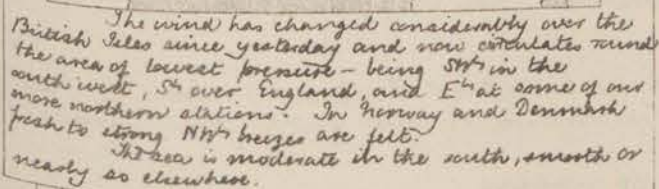 The wind has changed considerably over the
British Isles since yesterday and now circulates round
the area of lowest pressure – being SWly in the
south west, Sly over England, and Ely at some of our
more northern stations. In Norway and Denmark
fresh to strong NWly breezes are felt.
The sea is moderate in the south, smooth or
nearly so elsewhere.